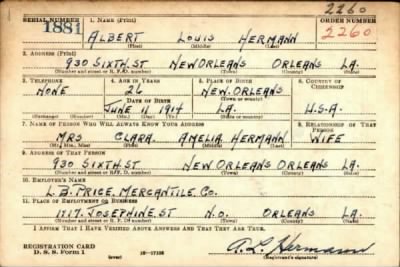 2260
SERIAL NUMBER 1. NAME (Print) ORDER NUMBER
1881 ALBERT LOUIS HERMANN 2260
(First) (Middle) (Last)
2. ADDRESS (Print)
930 SIXTH.ST NEW ORLEANS ORLEANS LA.
(Number and street or R. F. D. number) (Town) (County) (State)
3. TELEPHONE 4. AGE IN YEARS 5. PLACE OF BIRTH 6. COUNTRY OF CITIZENSHIP
NONE 26 N.ORLEANS
DATE OF BIRTH (Town or county)
JUNE 11 1914 LA. U.S.A.
(Exchange) (Number) (Mo.) (Day) (Yr.) (State or country)
7. NAME OF PERSON WHO WILL ALWAYS KNOW YOUR ADDRESS 8. RELATIONSHIP OF THAT PERSON
MRS CLARA. AMELIA. HERMANN WIFE
(Mr., Mrs., Miss) (First) (Middle) (Last)
9. ADDRESS OF THAT PERSON
930 SIXTH.ST NEW ORLEANS ORLEANS LA.
(Number and street or R. F. D. number) (Town) (County) (State)
10. EMPLOYER'S NAME
L.B. PRICE. MERCANTILE. CO.
11. PLACE OF EMPLOYMENT OR BUSINESS
1717. JOSEPHINE.ST N.O. ORLEANS LA.
(Number and street or R. F. D. number) (Town) (County) (State)
I AFFIRM THAT I HAVE VERIFIED ABOVE ANSWERS AND THAT THEY ARE TRUE.
REGISTRATION CARD
D. S. S. Form 1 (over) A. L. Hermann
(Registrant's signature)